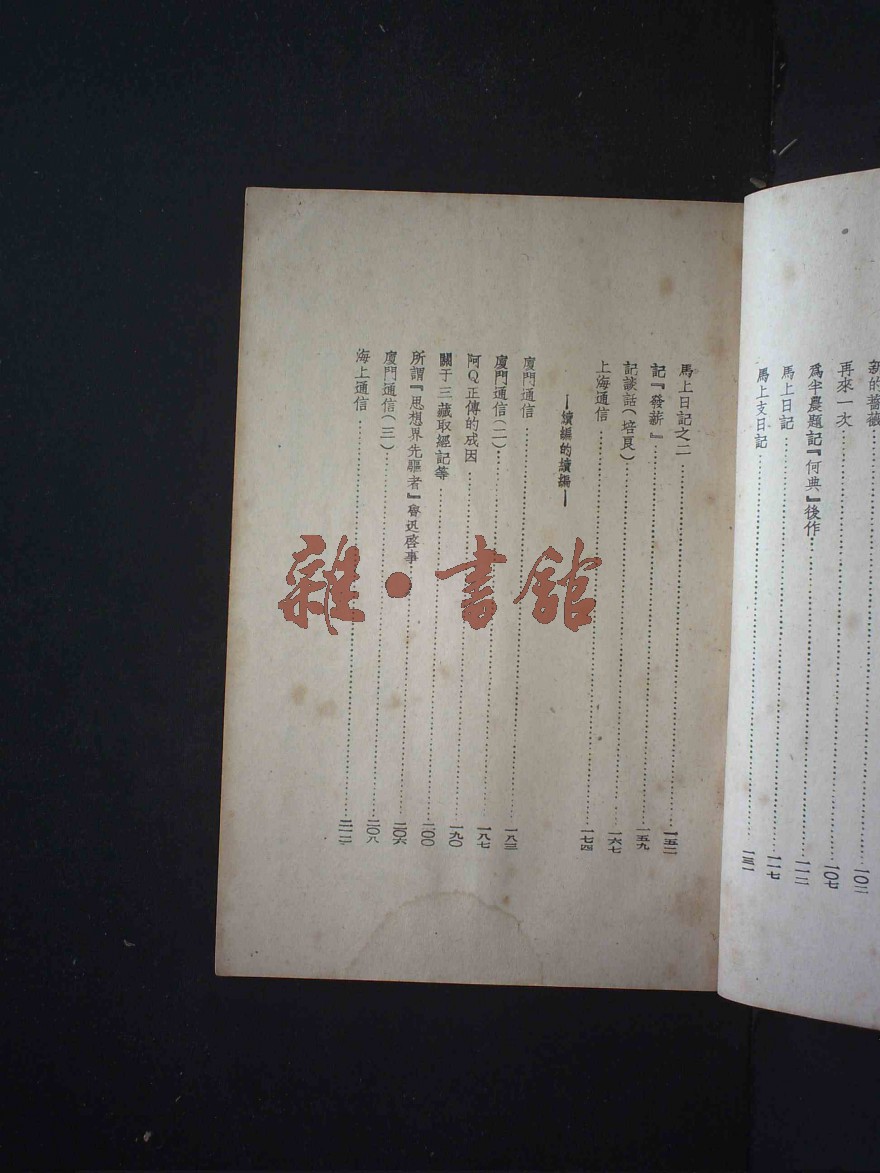 新的薔薇
一〇二
再來一次
一〇七
爲半農題記『何典』後作
一一二
馬上日記
一一七
馬上支日記
一三一
馬上日記之二
一五二
記『發薪』
一五九
記談話(培良)
一六七
上海通信
一七四
—續編的續編—
廈門通信
一八三
廈門通信(二)
一八七
阿Q正傳的成因
一九〇
關于三藏取經記等
二〇〇
所謂『思想界先驅者』魯迅啓事
二〇六
廈門通信(三)
二〇八
海上通信
二一二
雜·書館